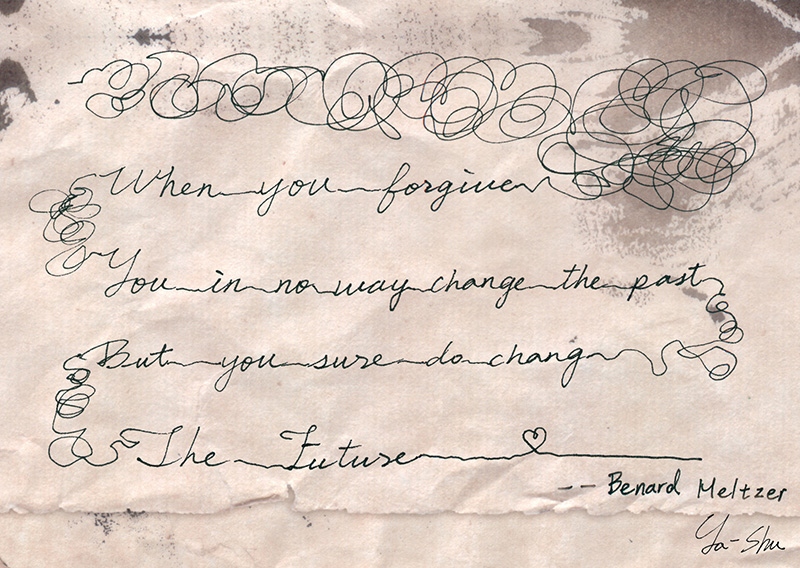 When you forgive
You in no way change the past
But you sure do chang
The Future
-- Benard Meltzer
Ya-Shu